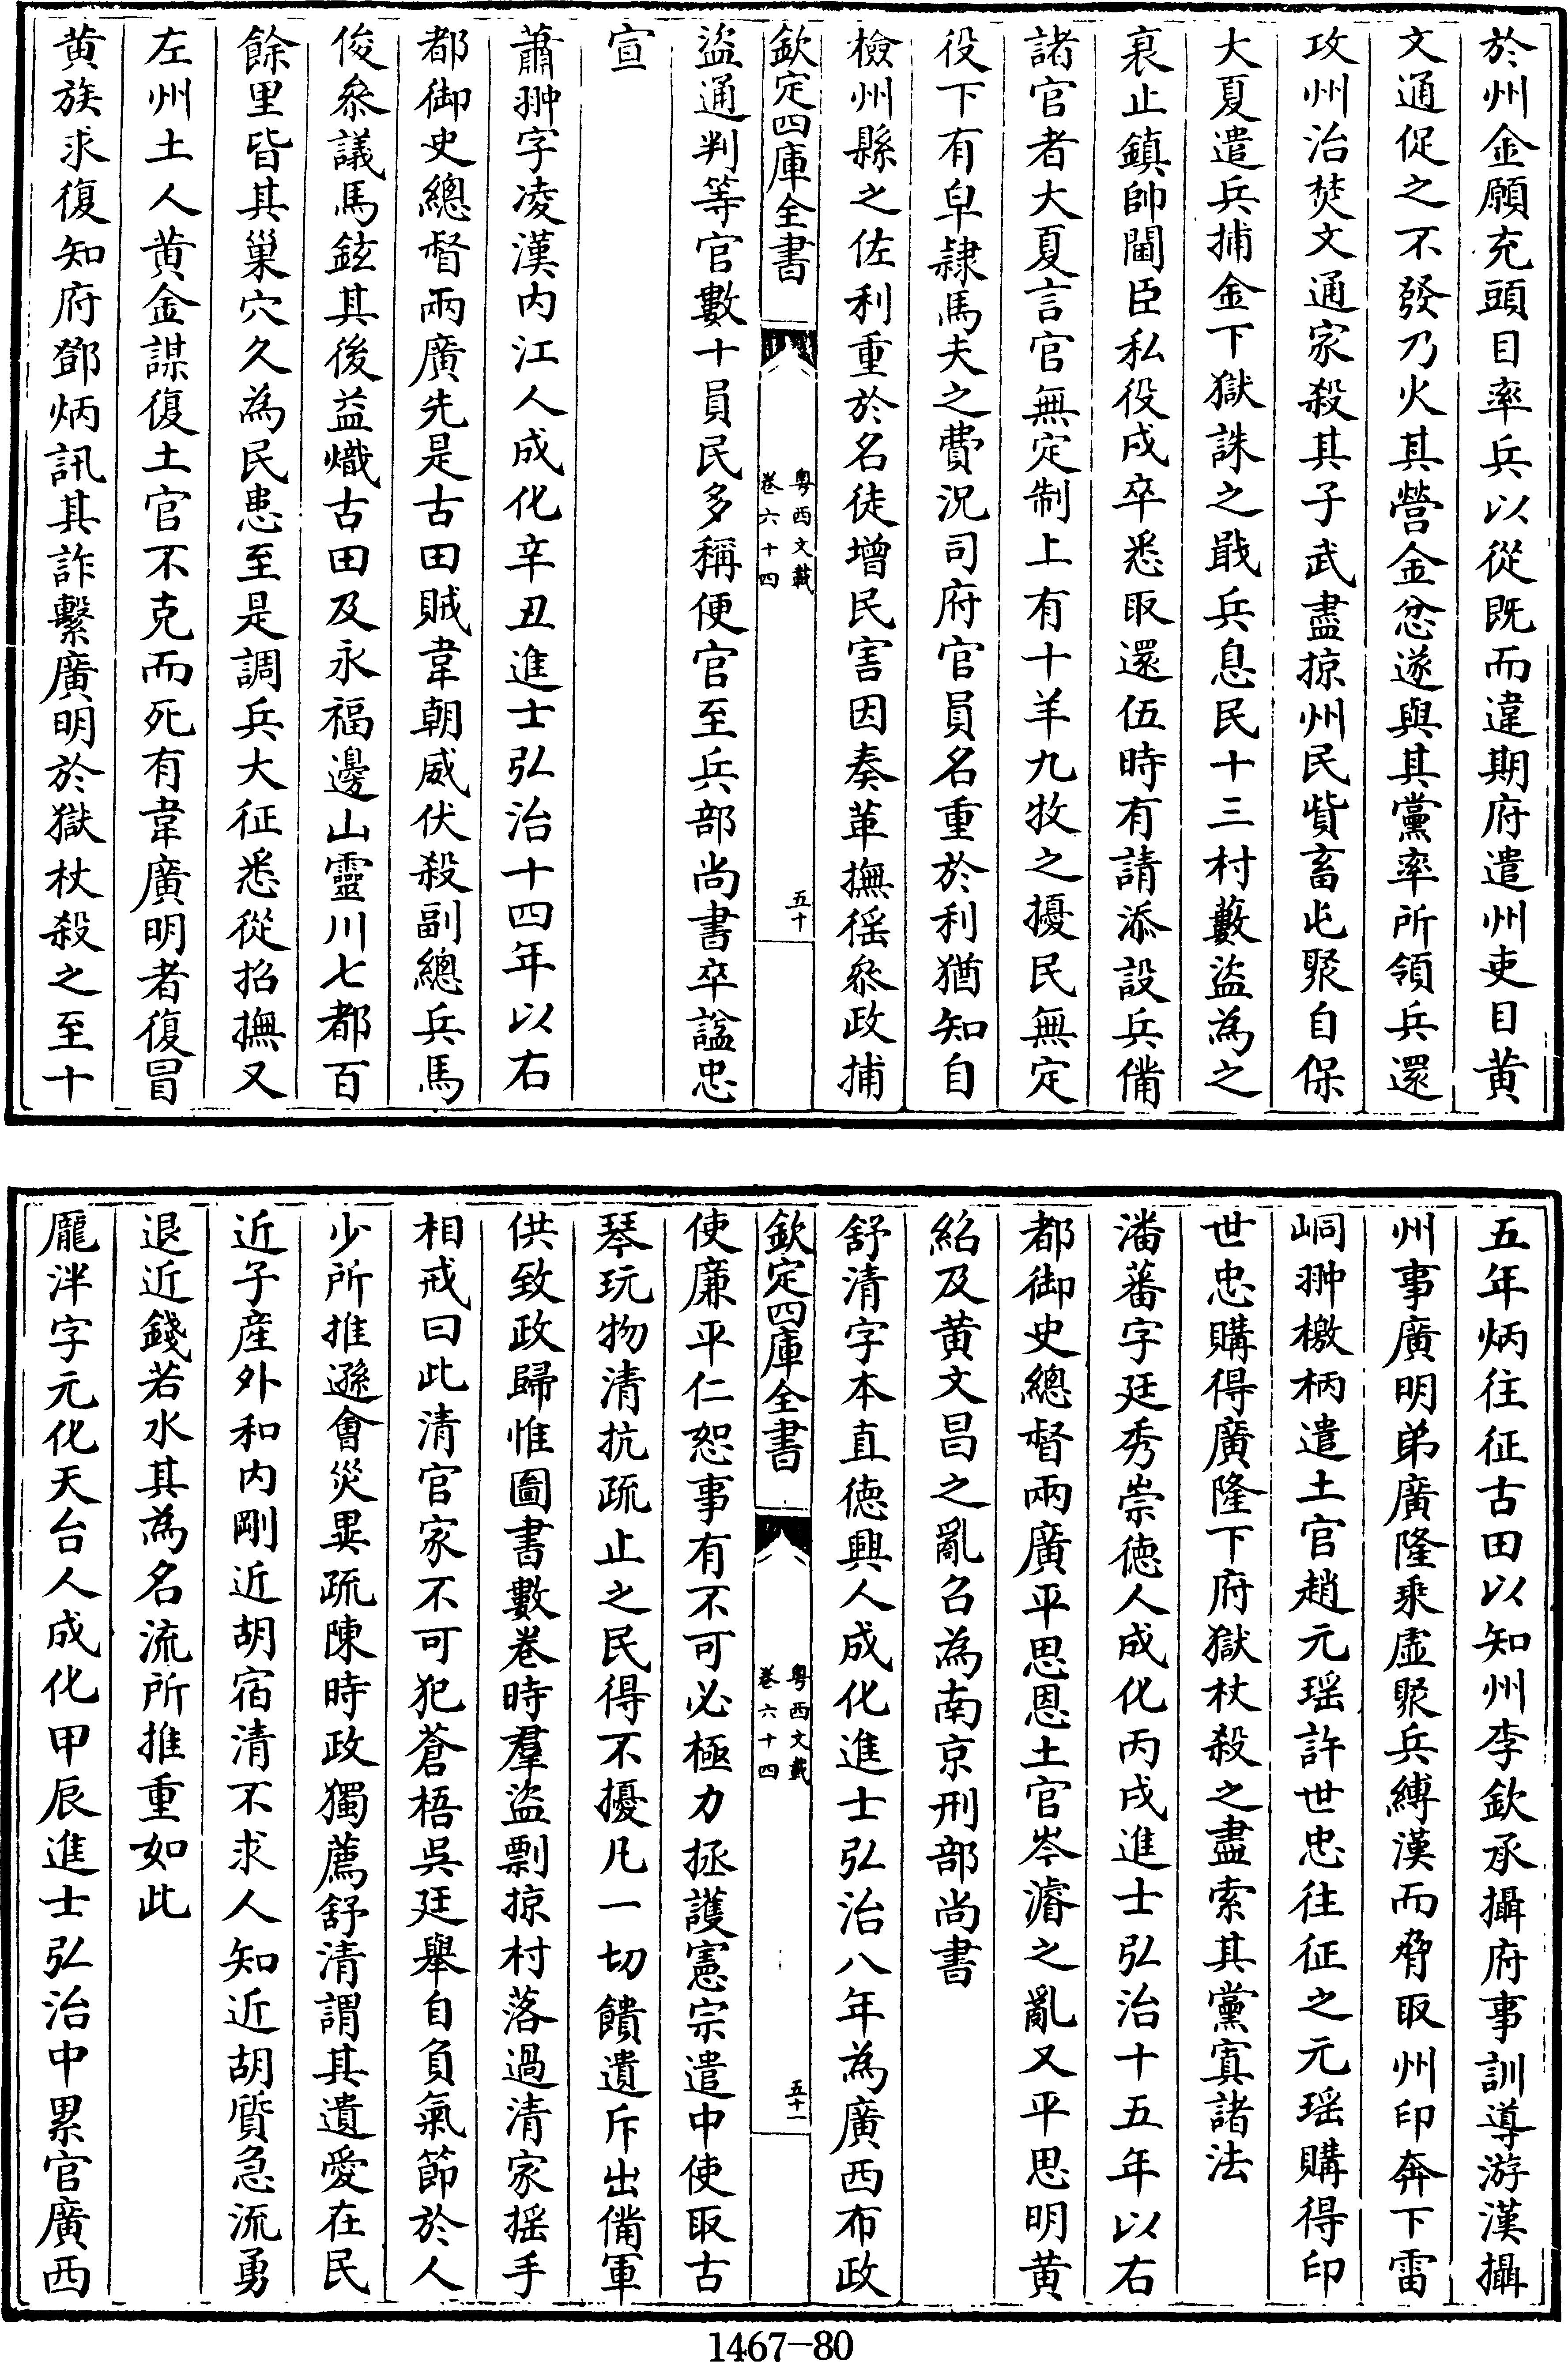 於州金願充頭目率兵以從既而違期府遣州吏目黄
文通促之不發乃火其營金忿遂與其黨率所領兵還
攻州治焚文通家殺其子武盡掠州民貲畜屯聚自保
大夏遣兵捕金下獄誅之戢兵息民十三村藪盜為之
衰止鎮帥閫臣私役戍卒悉取還伍時有請添設兵備
諸官者大夏言官無定制上有十羊九牧之擾民無定
役下有皁隷馬夫之費況司府官員名重於利猶知自
檢州縣之佐利重於名徒增民害因奏革撫徭叅政捕
欽定四庫全書
粤西文載
卷六十四
五十
盜通判等官數十員民多稱便官至兵部尚書卒諡忠
宣
蕭翀字凌漢内江人成化辛丑進士弘治十四年以右
都御史總督兩廣先是古田賊韋朝威伏殺副總兵馬
俊叅議馬鉉其後益熾古田及永福邊山靈川七都百
餘里皆其巢穴久為民患至是調兵大征悉從招撫又
左州土人黄金謀復土官不克而死有韋廣明者復冒
黄族求復知府鄧炳訊其詐繫廣明於獄杖殺之至十
五年炳往征古田以知州李欽承攝府事訓導游漢攝
州事廣明弟廣隆乘虚聚兵縛漢而脅取州印奔下雷
峒翀檄柄遣土官趙元瑶許世忠往征之元瑶購得印
世忠購得廣隆下府獄杖殺之盡索其黨寘諸法
潘蕃字廷秀崇德人成化丙戌進士弘治十五年以右
都御史總督兩廣平思恩土官岑濬之亂又平思明黄
紹及黄文昌之亂召為南京刑部尚書
舒清字本直德興人成化進士弘治八年為廣西布政
欽定四庫全書
粤西文載
卷六十四
五十一
使廉平仁恕事有不可必極力拯護憲宗遣中使取古
琴玩物清抗疏止之民得不擾凡一切饋遺斥出備軍
供致政歸惟圖書數卷時羣盜剽掠村落過清家摇手
相戒曰此清官家不可犯蒼梧吳廷舉自負氣節於人
少所推遜會災異疏陳時政獨薦舒清謂其遺愛在民
近子産外和内剛近胡宿清不求人知近胡質急流勇
退近錢若水其為名流所推重如此
龎泮字元化天台人成化甲辰進士弘治中累官廣西
1467-80